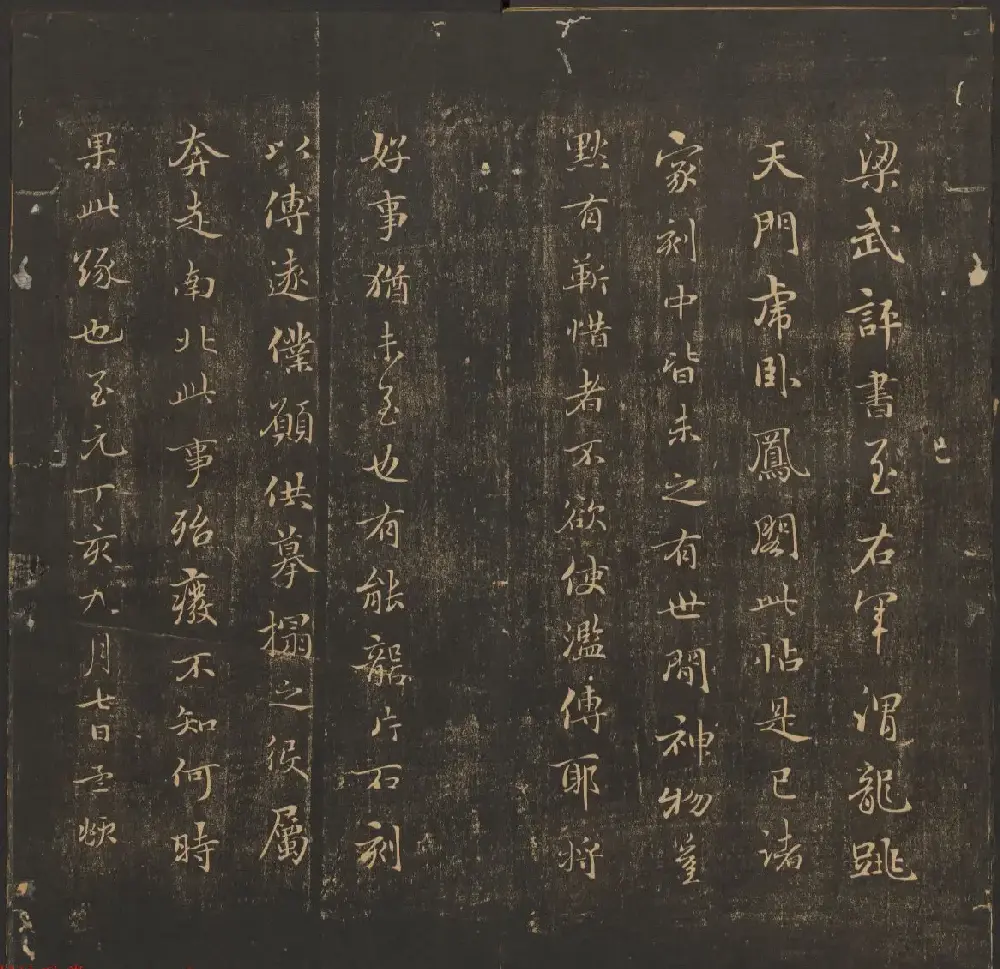 梁武評書至右軍謂龍跳
天門虎臥鳳閣此帖是已諸
家刻中皆未之有世間神物豈
默有靳惜者不欲使濫傳耶将
好事猶未至也有能斵片石刻
以傳遠僕願供摹搨之役屬
奔走南北此事殆癈不知何時
果此緣也至元丁亥九月七日孟頫